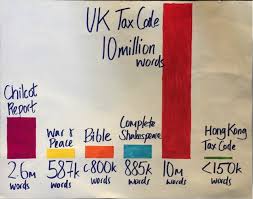 UK Tax Code
10 million
words
Chilcot
Report
War &
Peace
Bible
Complete
Shakespeare
Hong Kong
Tax Code
2.6m
words
587k
words
c800k
words
885k
words
10m
words
<150k
words